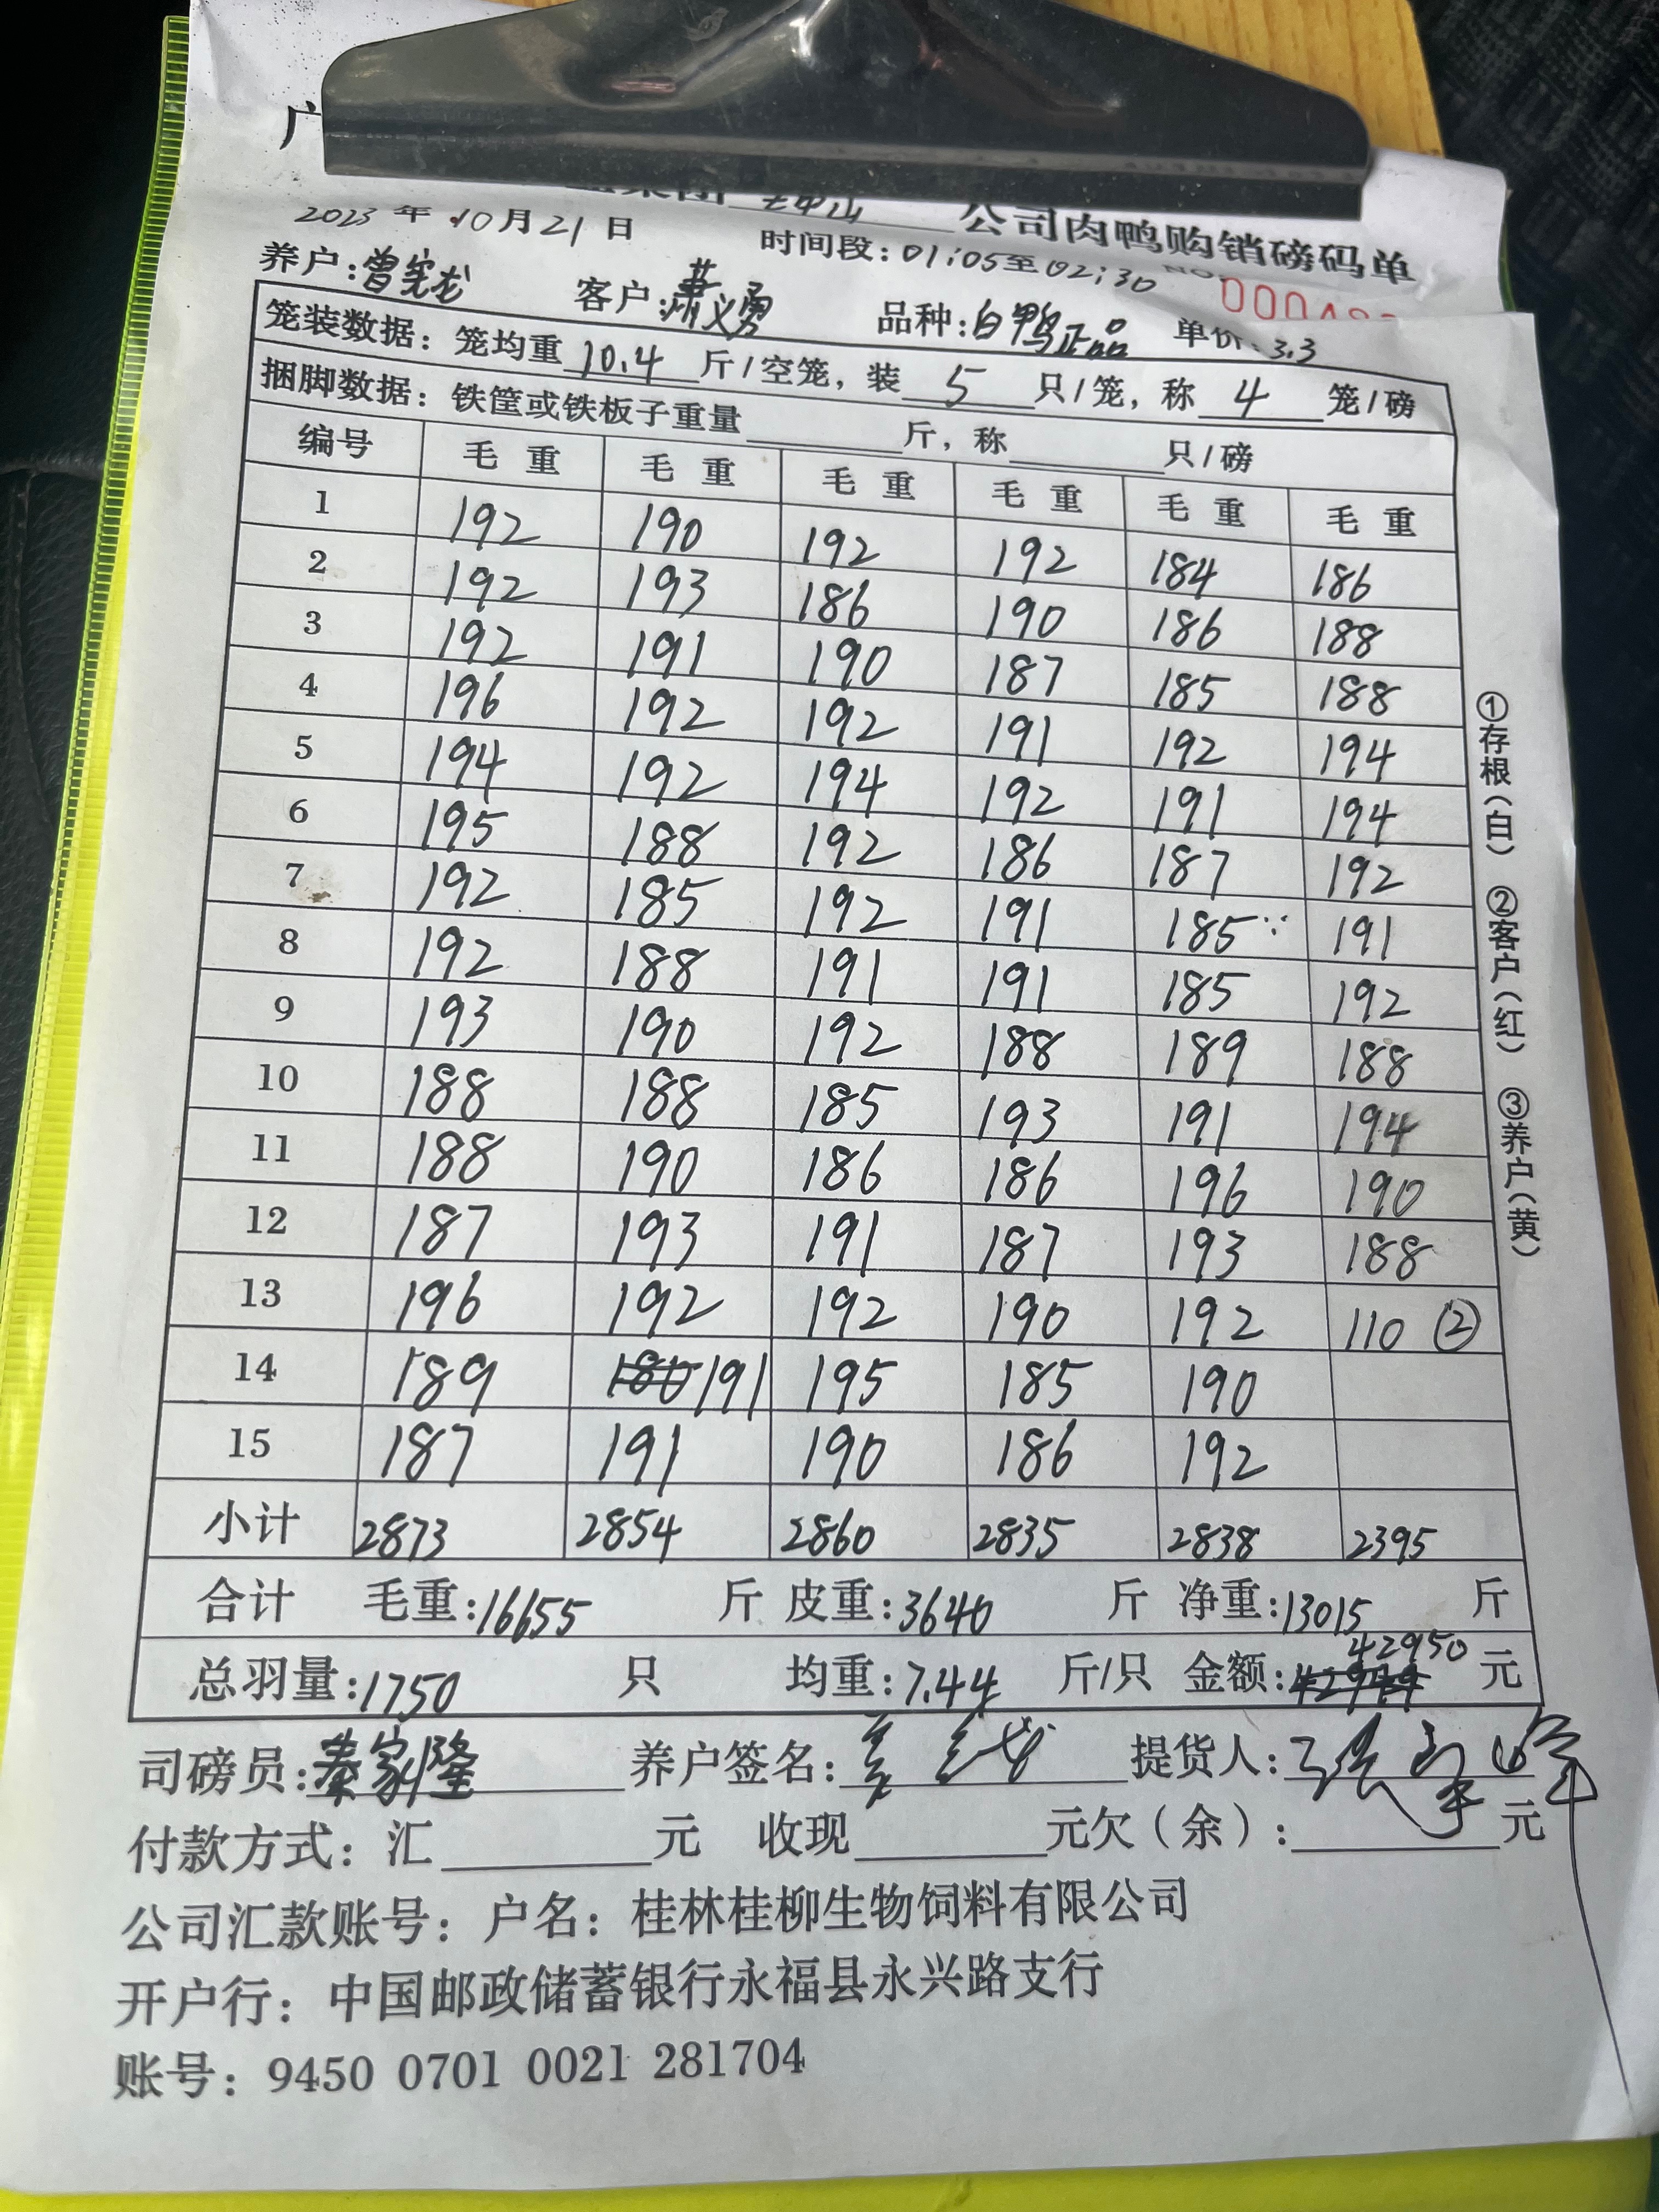 广
公司肉鸭购销磅码单
2023 年 10 月 21 日 时间段:01:05至02:30
养户:曾宪龙 客户:萧义勇 品种:白鸭正品 单价:3.3
笼装数据:笼均重 10.4 斤/空笼,装 5 只/笼,称 4 笼/磅
捆脚数据:铁筐或铁板子重量 斤,称 只/磅
编号 毛重 毛重 毛重 毛重 毛重 毛重
1 192 190 192 192 184 186
2 192 193 186 190 186 188
3 192 191 190 187 185 188
4 196 192 192 191 192 194
5 194 192 194 192 191 194
6 195 188 192 186 187 192
7 192 185 192 191 185 191
8 192 188 191 191 185 192
9 193 190 192 188 189 188
10 188 188 185 193 191 194
11 188 190 186 186 196 190
12 187 193 191 187 193 188
13 196 192 192 190 192 110 ②
14 189 191 195 185 190
15 187 191 190 186 192
小计 2873 2854 2860 2835 2838 2395
合计 毛重:16655 斤 皮重:3640 斤 净重:13015 斤
总羽量:1750 只 均重:7.44 斤/只 金额:42950 元
司磅员:秦家隆 养户签名: 提货人:
付款方式:汇 元 收现 元欠(余): 元
公司汇款账号:户名:桂林桂柳生物饲料有限公司
开户行:中国邮政储蓄银行永福县永兴路支行
账号:9450 0701 0021 281704
①存根(白) ②客户(红) ③养户(黄)